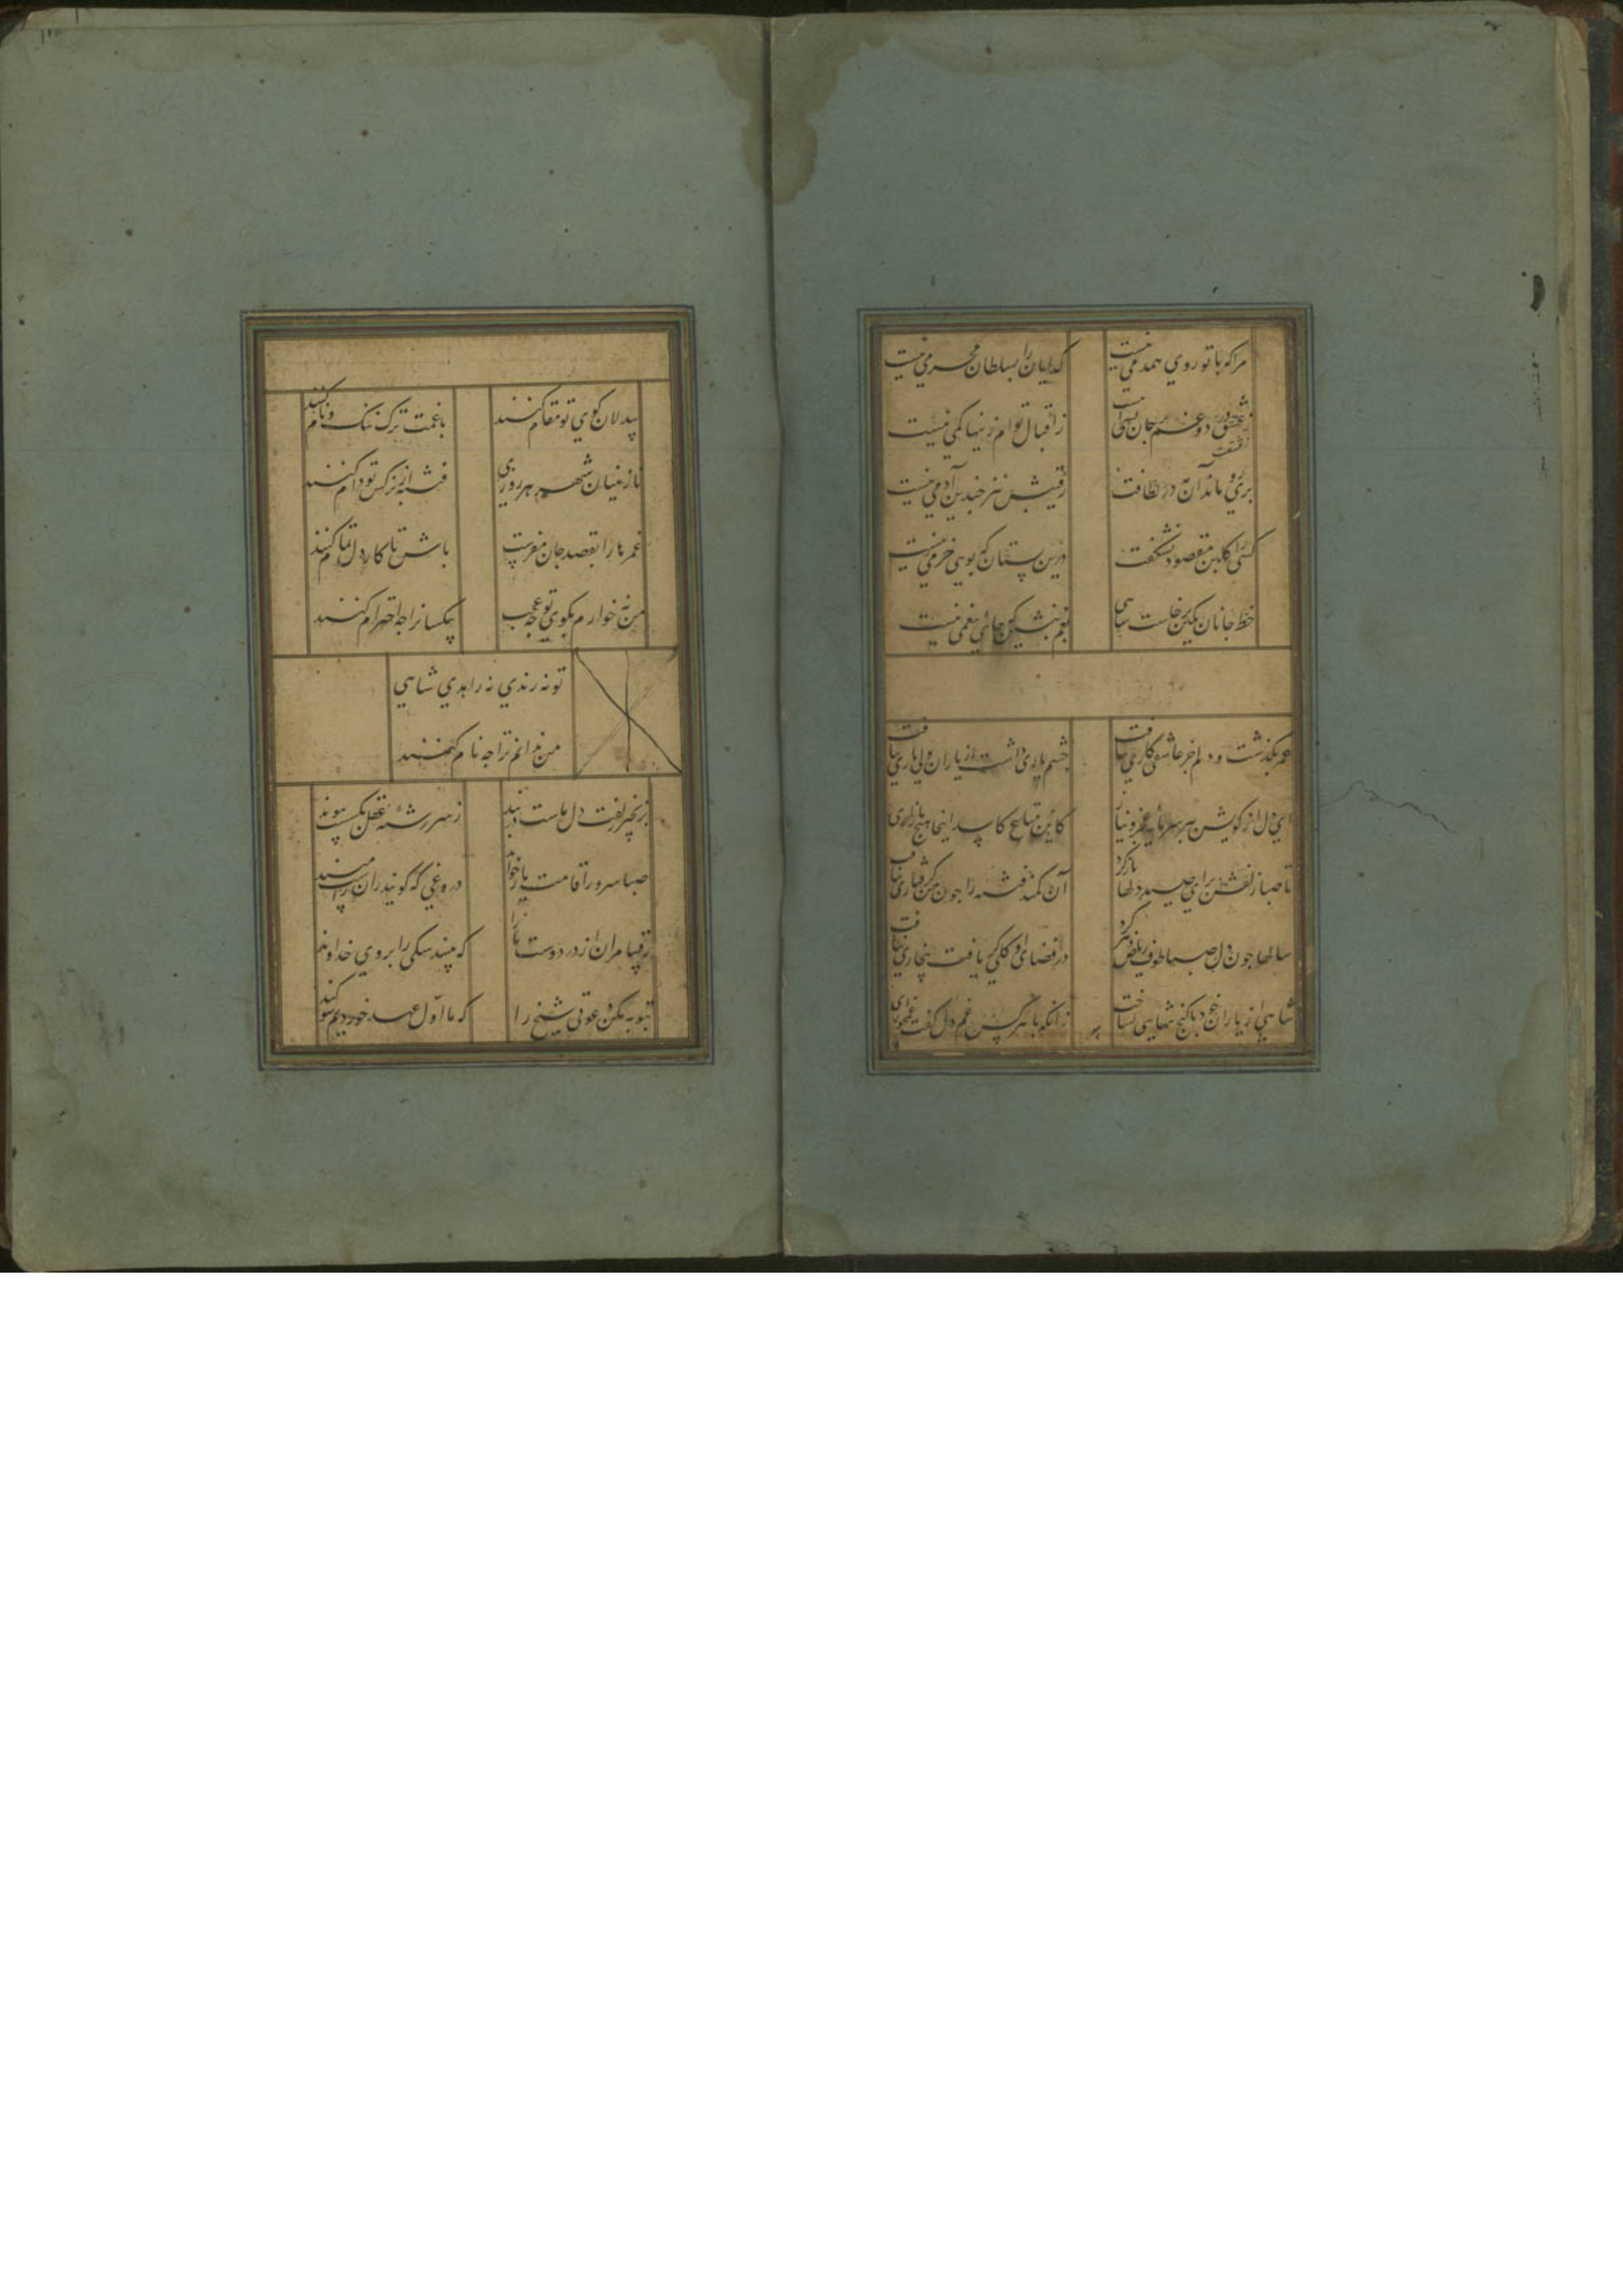 مرا که با تو روی همدمی نیست
کدایان را بسلطان محرمی نیست
ز عشقت در دو غم بر جان بسی هست
ز اقبال توام زینها کمی نیست
پری رو ماند آن مه در لطافت
رقیبش نیز چندین آدمی نیست
کسی را کلبن مقصود نشکفت
درین بستان که بوی خرمی نیست
خط جانان بکین برخاست شاهی
بغم بنشین که جای بی غمی نیست
عمر بکذشت و دلم جز عاشقی کاری نیافت
چشم یاری داشت از یاران ولی یاری نیافت
ای دل از کویش ببر سرمایه عجز و نیاز
کاین متاع کاسد اینجا هیچ بازاری نیافت
تا صبا زلفش برای صید دلها باز کرد
آن کمند فتنه را چون من کرفتاری نیافت
سالها چون دل صبا طوف ریاض دهر کرد
در فضای او کلی کر یافت بیخاری نیافت
شاهی از یاران خود با کنج تنهایی بساخت
زانکه با هر کس غم دل کفت غمخواری نیافت
بیدلان کوی تو مقام کنند
با غمت ترک ننک و نام کنند
نازنینان شهر هر روزی
فتنه از نرکس تو وام کنند
غم ما را بقصد جان مفرست
باش تا کار دل تمام کنند
من نه خوارم بکوی تو چه عجب
بیکسانرا چه احترام کنند
تو نه رندی نه زاهدی شاهی
من ندانم ترا چه نام کنند
بزنجیر زلفت دل ماست در بند
ز سر رشته عقل بکسست پیوند
صبا سرو را قامت یار خواند
دروغی که کویند بر آن راست مپسند
رقیبا مران از در دوست ما را
که بیند سکی را بروی خداوند
بتوبه مکن دعوتی شیخ را
که ما اول عهد خوردیم سوکند